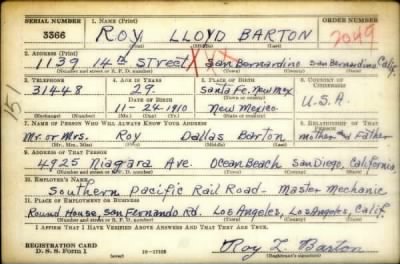 SERIAL NUMBER 1. NAME (Print) ORDER NUMBER
3366 ROY LLOYD BARTON 7049
(First) (Middle) (Last)
2. ADDRESS (Print)
1139 14th Street San Bernardino San Bernardino Calif.
(Number and street or R. F. D. number) (Town) (County) (State)
3. TELEPHONE 4. AGE IN YEARS 5. PLACE OF BIRTH 6. COUNTRY OF CITIZENSHIP
31448 29. Santa Fe. New Mex
DATE OF BIRTH (Town or county)
11-24-1910 New Mexico U.S.A.
(Exchange) (Number) (Mo.) (Day) (Yr.) (State or country)
151
7. NAME OF PERSON WHO WILL ALWAYS KNOW YOUR ADDRESS
Mr. or Mrs. Roy Dallas Barton mother Father
(Mr., Mrs., Miss) (First) (Middle) (Last)
9. ADDRESS OF THAT PERSON
4925 Niagara Ave. Ocean Beach San Diego, California
(Number and street or R. F. D. number) (Town) (County) (State)
10. EMPLOYER'S NAME
Southern Pacific Rail Road - Master Mechanic
11. PLACE OF EMPLOYMENT OR BUSINESS
Round House, San Fernando Rd. Los Angeles, Los Angeles, Calif.
(Number and street or R. F. D. number) (Town) (County) (State)
I AFFIRM THAT I HAVE VERIFIED ABOVE ANSWERS AND THAT THEY ARE TRUE.
REGISTRATION CARD
D. S. S. Form 1 Roy L Barton
(Registrant's signature)